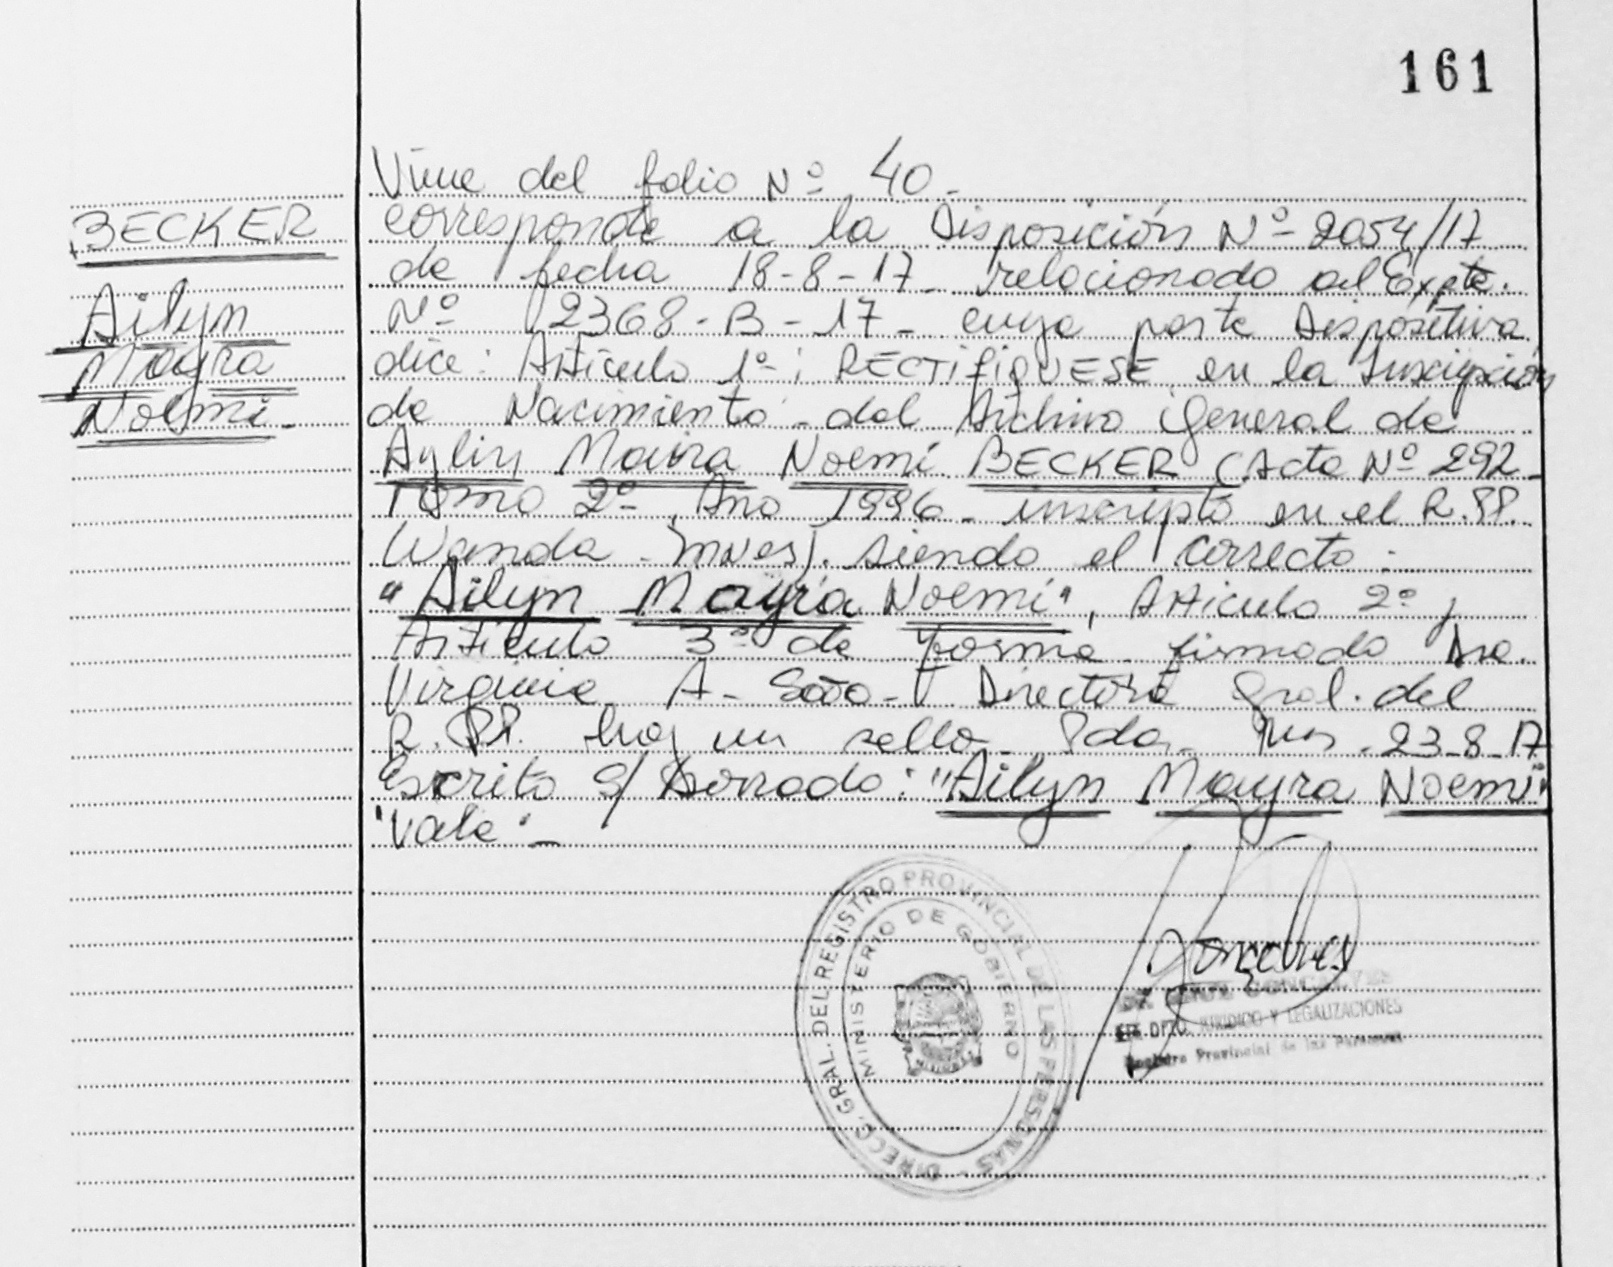 161
BECKER
Ailyn
Mayra
Noemi.
Viene del folio Nº 40.
corresponde a la Disposición Nº 2054/17
de fecha 18-8-17. relacionado al Expte.
Nº 2368-B-17- cuya parte Dispositiva
dice: Artículo 1º: RECTIFIQUESE en la Inscripción
de Nacimiento del Archivo General de
Aylin Maira Noemi BECKER (Acta Nº 292
Tomo 2º, Año 1996- inscripto en el R.PP.
Wanda - Mnes). siendo el correcto:
"Ailyn Mayra Noemi", Artículo 2º y
Artículo 3º de forma firmado Dra.
Virginia A. Soto- Directora Gral. del
R.PP. hay un sello- Pdas- Mns. 23-8-17
Escrito S/ borrado: "Ailyn Mayra Noemi"
"Vale"-
DIRECC. GRAL. DEL REGISTRO PROVINCIAL DE LAS PERSONAS -
MINISTERIO DE GOBIERNO
DPTO. JURIDICO Y LEGALIZACIONES
Registro Provincial de las Personas